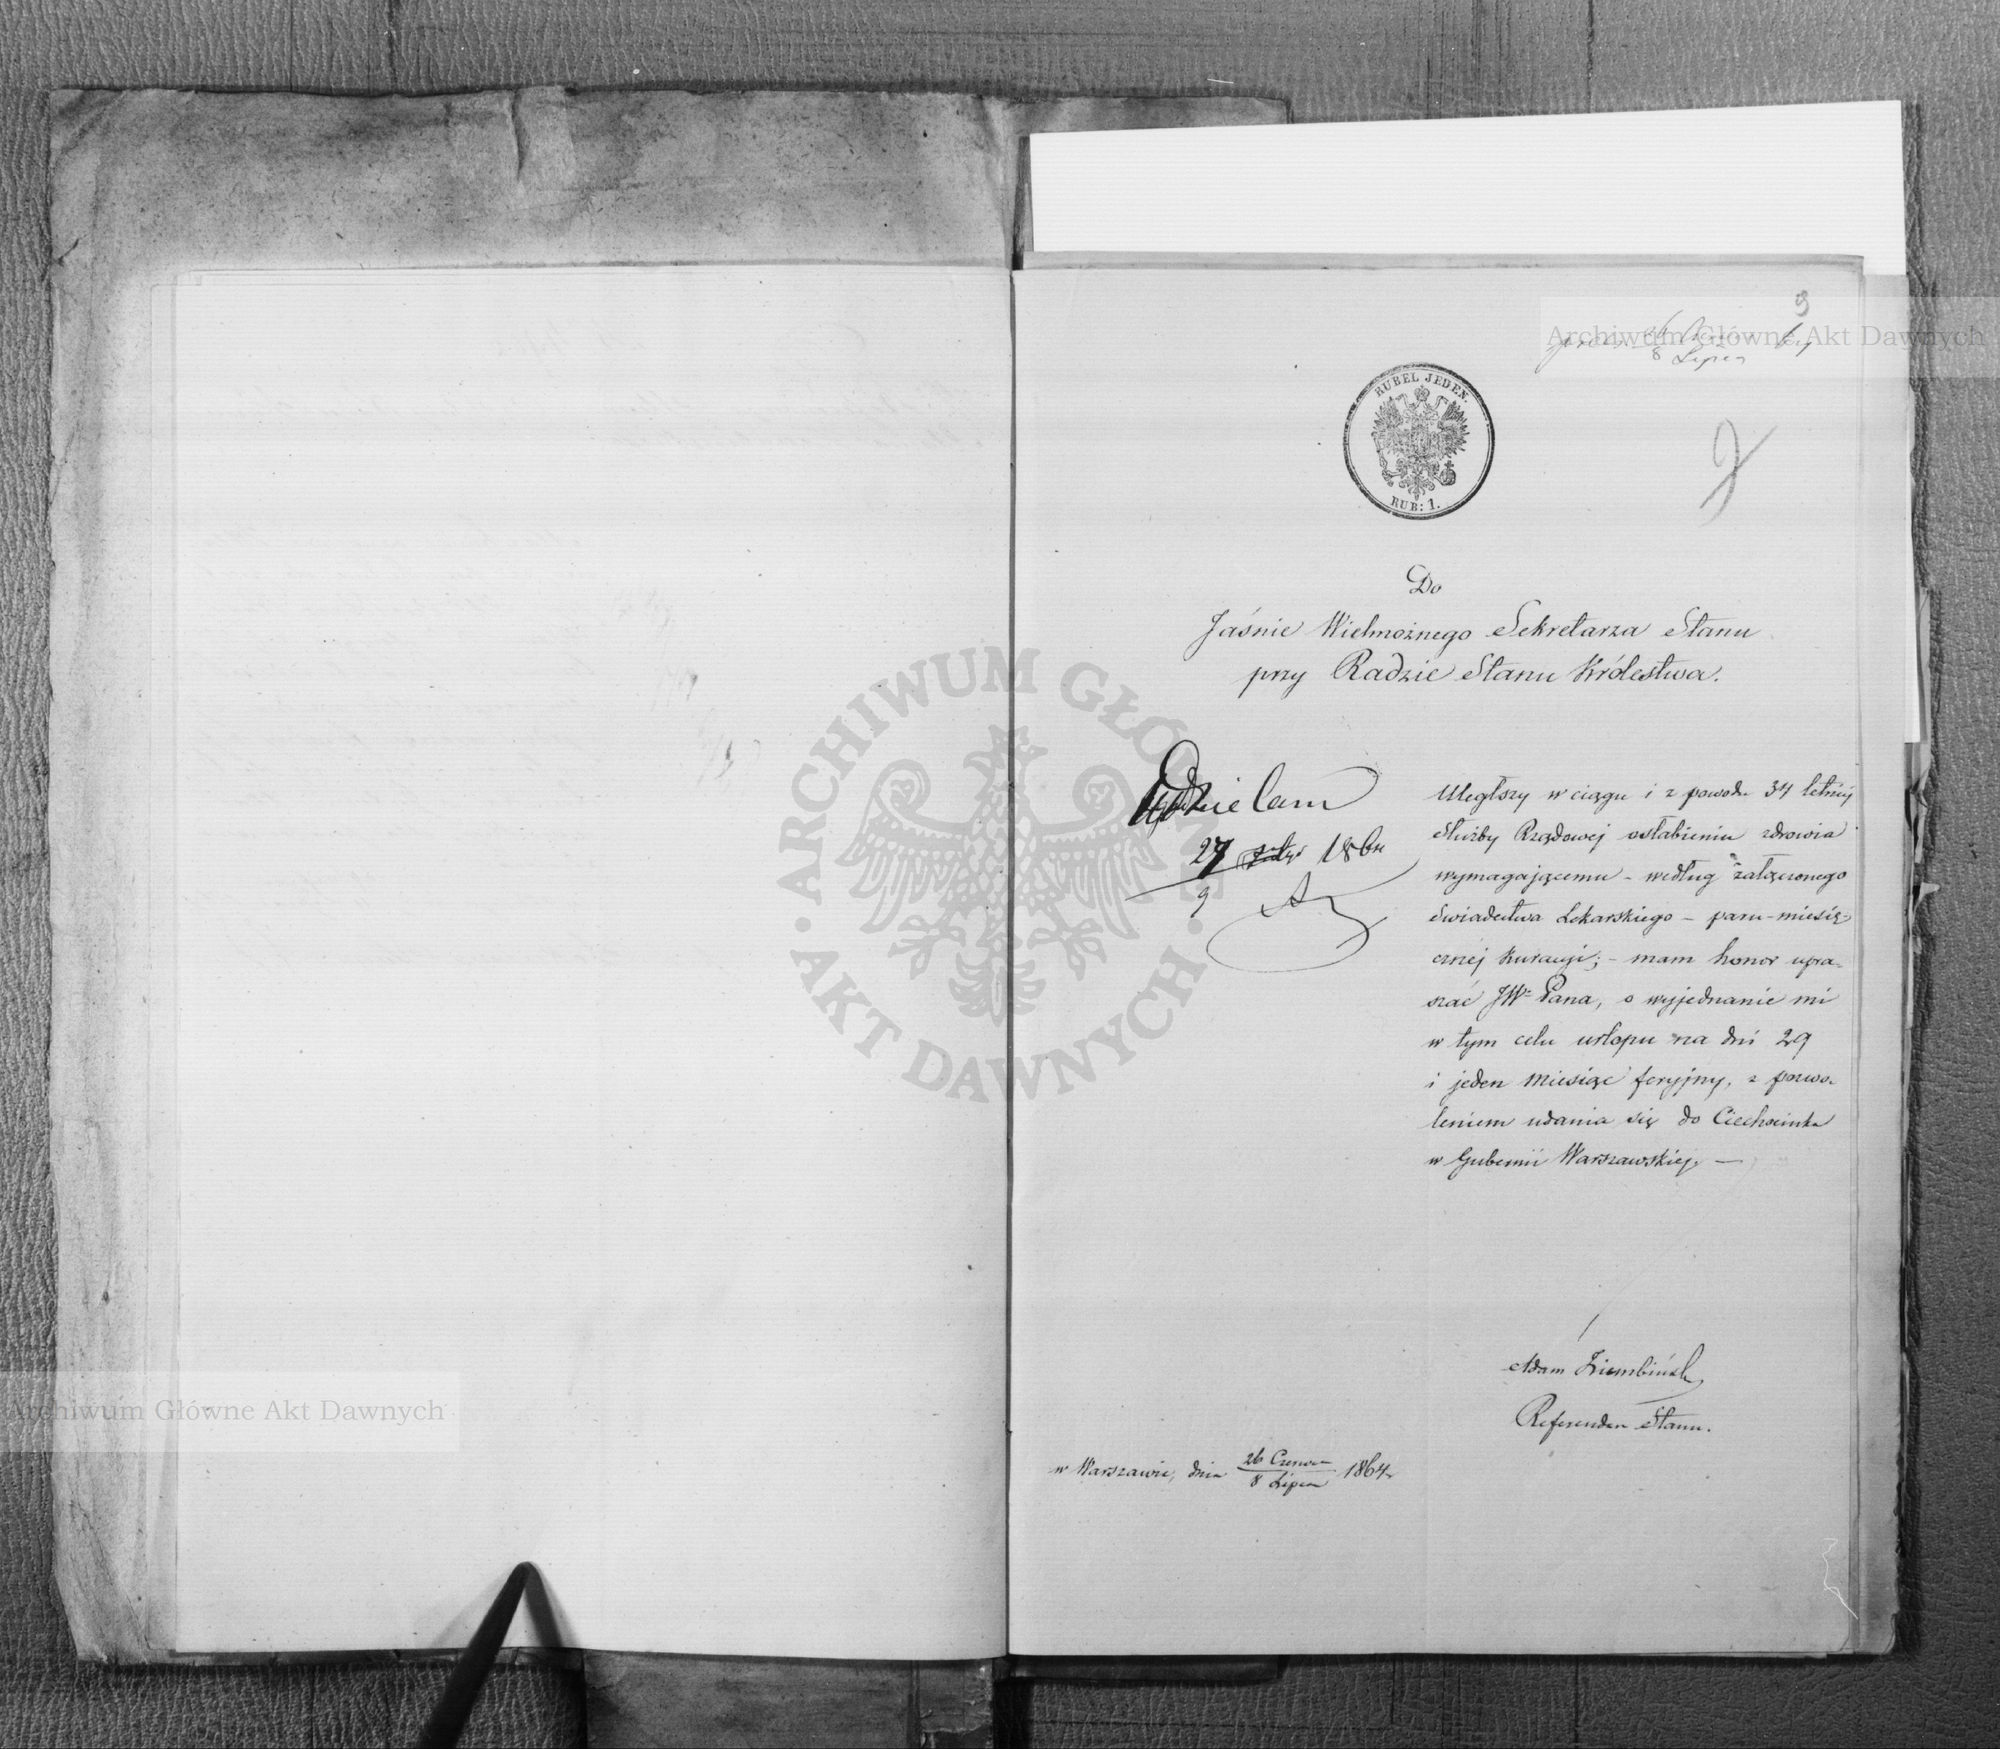 9
26 Czerw
8 Lipca 64
RUBEL JEDEN.
RUB: 1.
Do
Jaśnie Wielmożnego Sekretarza Stanu
przy Radzie Stanu Królestwa.
Udzielam
27 1864
9
Uległszy w ciągu i z powodu 34 letniej
służby Rządowej osłabieniu zdrowia
wymagającemu - według załączonego
świadectwa Lekarskiego - paru-miesię-
cznej kuracyi; - mam honor upra-
szać JWº Pana, o wyjednanie mi
w tym celu urlopu na dni 29
i jeden miesiąc feryjny, z pozwo-
leniem udania się do Ciechocinka
w Gubernii Warszawskiej. —
Adam Ziembiński
Referendarz Stanu.
w Warszawie, dnia 26 Czerwca
8 Lipca 1864.
Archiwum Główne Akt Dawnych
ARCHIWUM GŁÓWNE AKT DAWNYCH
Archiwum Główne Akt Dawnych